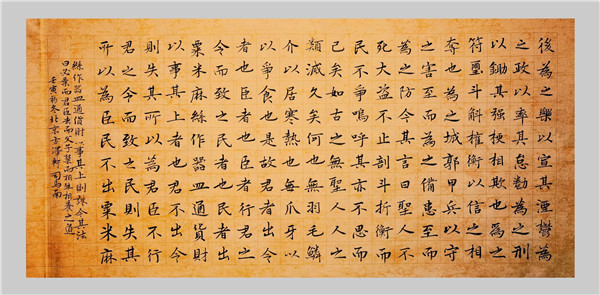 後為之樂以宣其湮鬱為
之政以率其怠勌為之刑
以鋤其强梗相欺也為之
符璽斗斛權衡以信之相
奪也為之城郭甲兵以守
之害至而為之備患至而
為之防今其言曰聖人不
死大盗不止剖斗折衡而
民不爭嗚呼其亦不思而
已矣如古之無聖人人之
類滅久矣何也無羽毛鱗
介以居寒熱也無爪牙以
以爭食也是故君者出令
者也臣者也臣者行君之
令而致之民者也民者出
粟米麻絲作器皿通貨財
以事其上者也君不出令
則失其所以為君臣不行
君之令而致之民則失其
所以為臣民不出粟米麻
絲作器皿通貨財以事其上則誅今其法
曰必棄而君臣去而父子禁而相生相養之道
壬寅初冬北京 司馬南